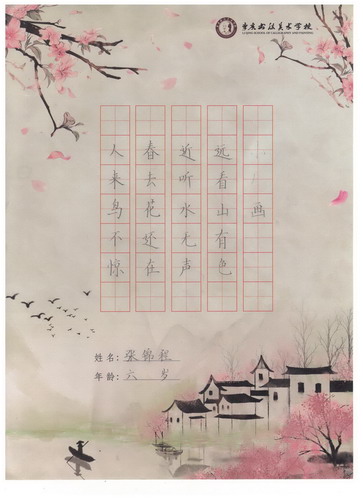 书法美术学校
SCHOOL OF CALLIGRAPHY AND PAINTING
画
远看山有色
近听水无声
春去花还在
人来鸟不惊
姓名：张锦程
年龄：六 岁